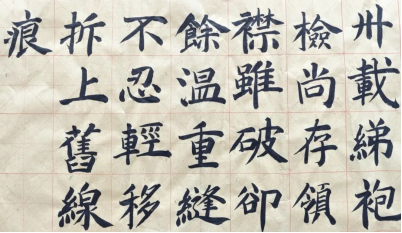 卅載綈袍
檢尚存領
襟雖破卻
餘温重縫
不忍輕移
拆上舊線
痕